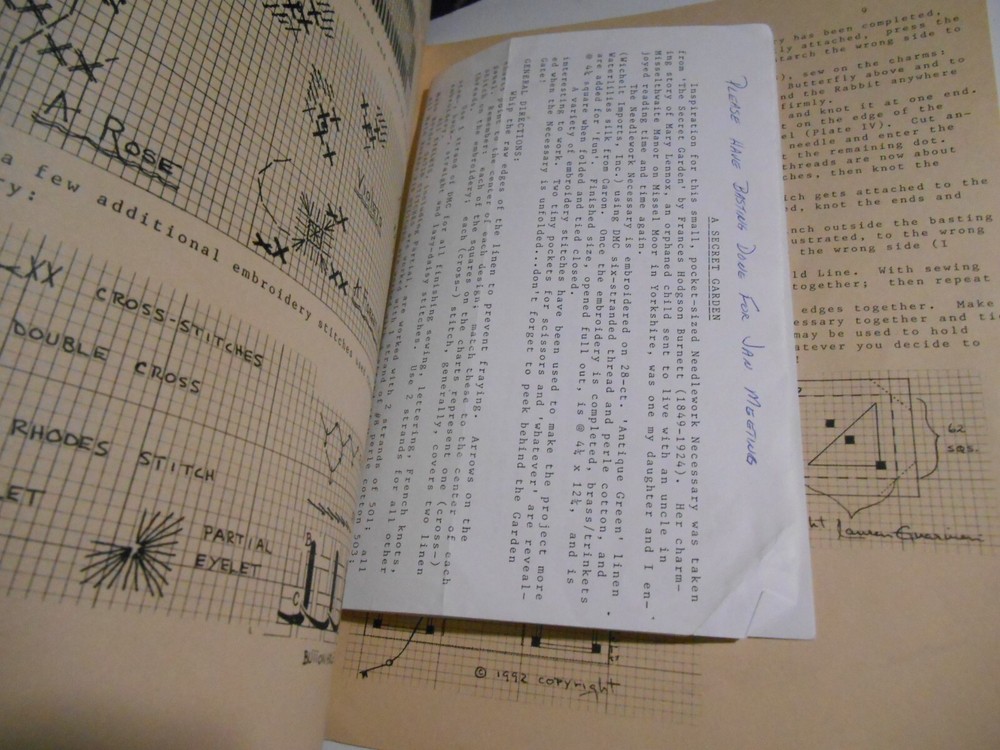 A ROSE
a few additional embroidery stitches
ry:
XX CROSS-STITCHES
DOUBLE CROSS
RHODES STITCH
ET
PARTIAL
EYELET
B
C
PLEASE HAVE BASTING DONE FOR JAN MEETING
A SECRET GARDEN
Inspiration for this small, pocket-sized Needlework Necessary was taken
from 'The Secret Garden' by Frances Hodgson Burnett (1849-1924). Her charm-
ing story of Mary Lennox, an orphaned child sent to live with an uncle in
Misselthwaite Manor on Missel Moor in Yorkshire, was one my daughter and I en-
joyed reading time and time again.
The Needlework Necessary is embroidered on 28-ct. 'Antique Green' linen
(Wichelt Imports, Inc.) using DMC six-stranded thread and perle cotton, and
Waterlilies silk from Caron. Once the embroidery is completed, brass/trinkets
are added for 'fun'. Finished size, opened full out, is @ 4¼ x 12¼, and is
@ 4¼ square when folded and tied closed.
A variety of embroidery stitches have been used to make the project more
interesting to work. Two tiny pockets for scissors and 'whatever' are reveal-
ed when the Necessary is unfolded...don't forget to peek behind the Garden
Gate!
GENERAL DIRECTIONS:
Whip the raw edges of the linen to prevent fraying. Arrows on the
point to the center of each design, match these to the center of each
remember: each of the squares on the charts represent one (cross-)
embroidery; each (cross-) stitch, generally, covers two linen
1 strand of DMC for all finishing sewing, lettering, French knots,
straight and lazy-daisy stitches. Use 2 strands for all other
are worked with 2 strands of 501; all
with 1 strand of #8 perle cotton 503
9
has been completed,
attached, press the
starch the wrong side to
sew on the charms:
Butterfly above and to
and the Rabbit anywhere
firmly.
and knot it at one end.
on the edge of the
(Plate IV). Cut an-
needle and enter the
the remaining dot.
threads are now about
then knot the
gets attached to the
knot the ends and
outside the basting
to the wrong
the wrong side (I
Line. With sewing
together; then repeat
edges together. Make
together and ti
may be used to hold
you decide to
62
sqs.
Lauren
© 1992 copyright